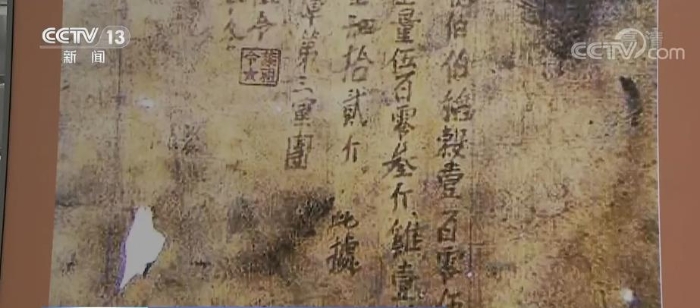 CCTV 13
新闻
CCTV.com
伯伯稻穀壹百零伍
量伍百零叁斤雞壹
拾貳斤 此據
第三軍團